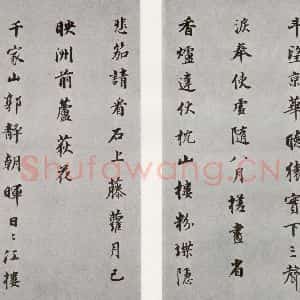 斗望京華聽猿實下三聲
淚奉使虛隨八月槎畫省
香爐違伏枕山樓粉堞隱
悲笳請看石上藤蘿月已
映洲前蘆荻花
千家山郭靜朝暉日々江樓
Shufawang.cn